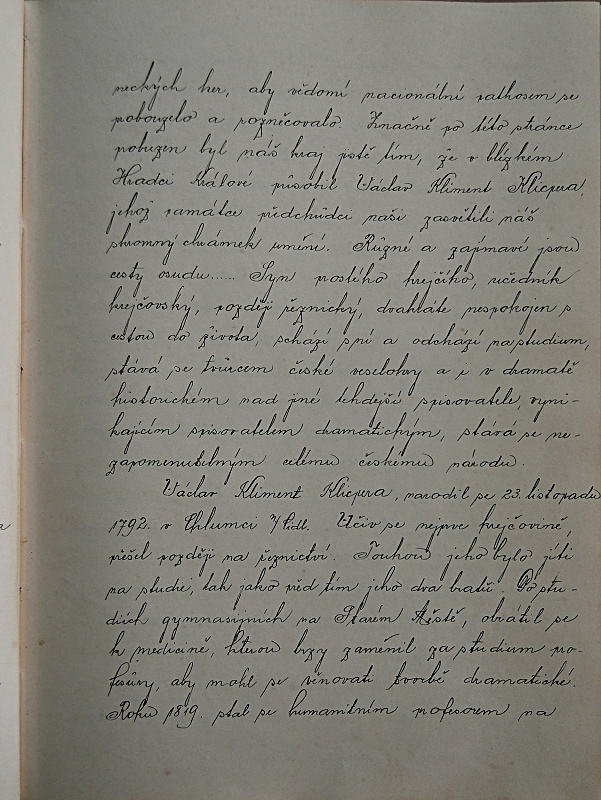 neckých her, aby vědomí nacionální pathosem se
pobouzelo a rozněcovalo. Značně po této stránce
pobuzen byl náš kraj jistě tím, že v blízkém
Hradci Králové působil Václav Kliment Klicpera,
jehož památce předchůdci naši zasvětili náš
skromný chrámek umění. Různé a zajímavé jsou
cesty osudu...... Syn prostého krejčího, učedník
krejčovský, později řeznický, dvakráte nespokojen s
cestou do života, schází s ní a odchází na studium,
stává se tvůrcem české veselohry a i v dramatě
historickém nad jiné tehdejší spisovatele, vyni-
kajícím spisovatelem dramatickým, stává se ne-
zapomenutelným celému českému národu.
Václav Kliment Klicpera, narodil se 23. listopadu
1792. v Chlumci n/Cidl. Učiv se nejprve krejčovině,
přešel později na řeznictví. Touhou jeho bylo jíti
na studie, tak jako před tím jeho dva bratři. Po stu-
diích gymnasijních na Starém Městě, obrátil se
k medicině, kterou brzy zaměnil za studium pro-
fesůry, aby mohl se věnovati tvorbě dramatické.
Roku 1819. stal se humanitním profesorem na